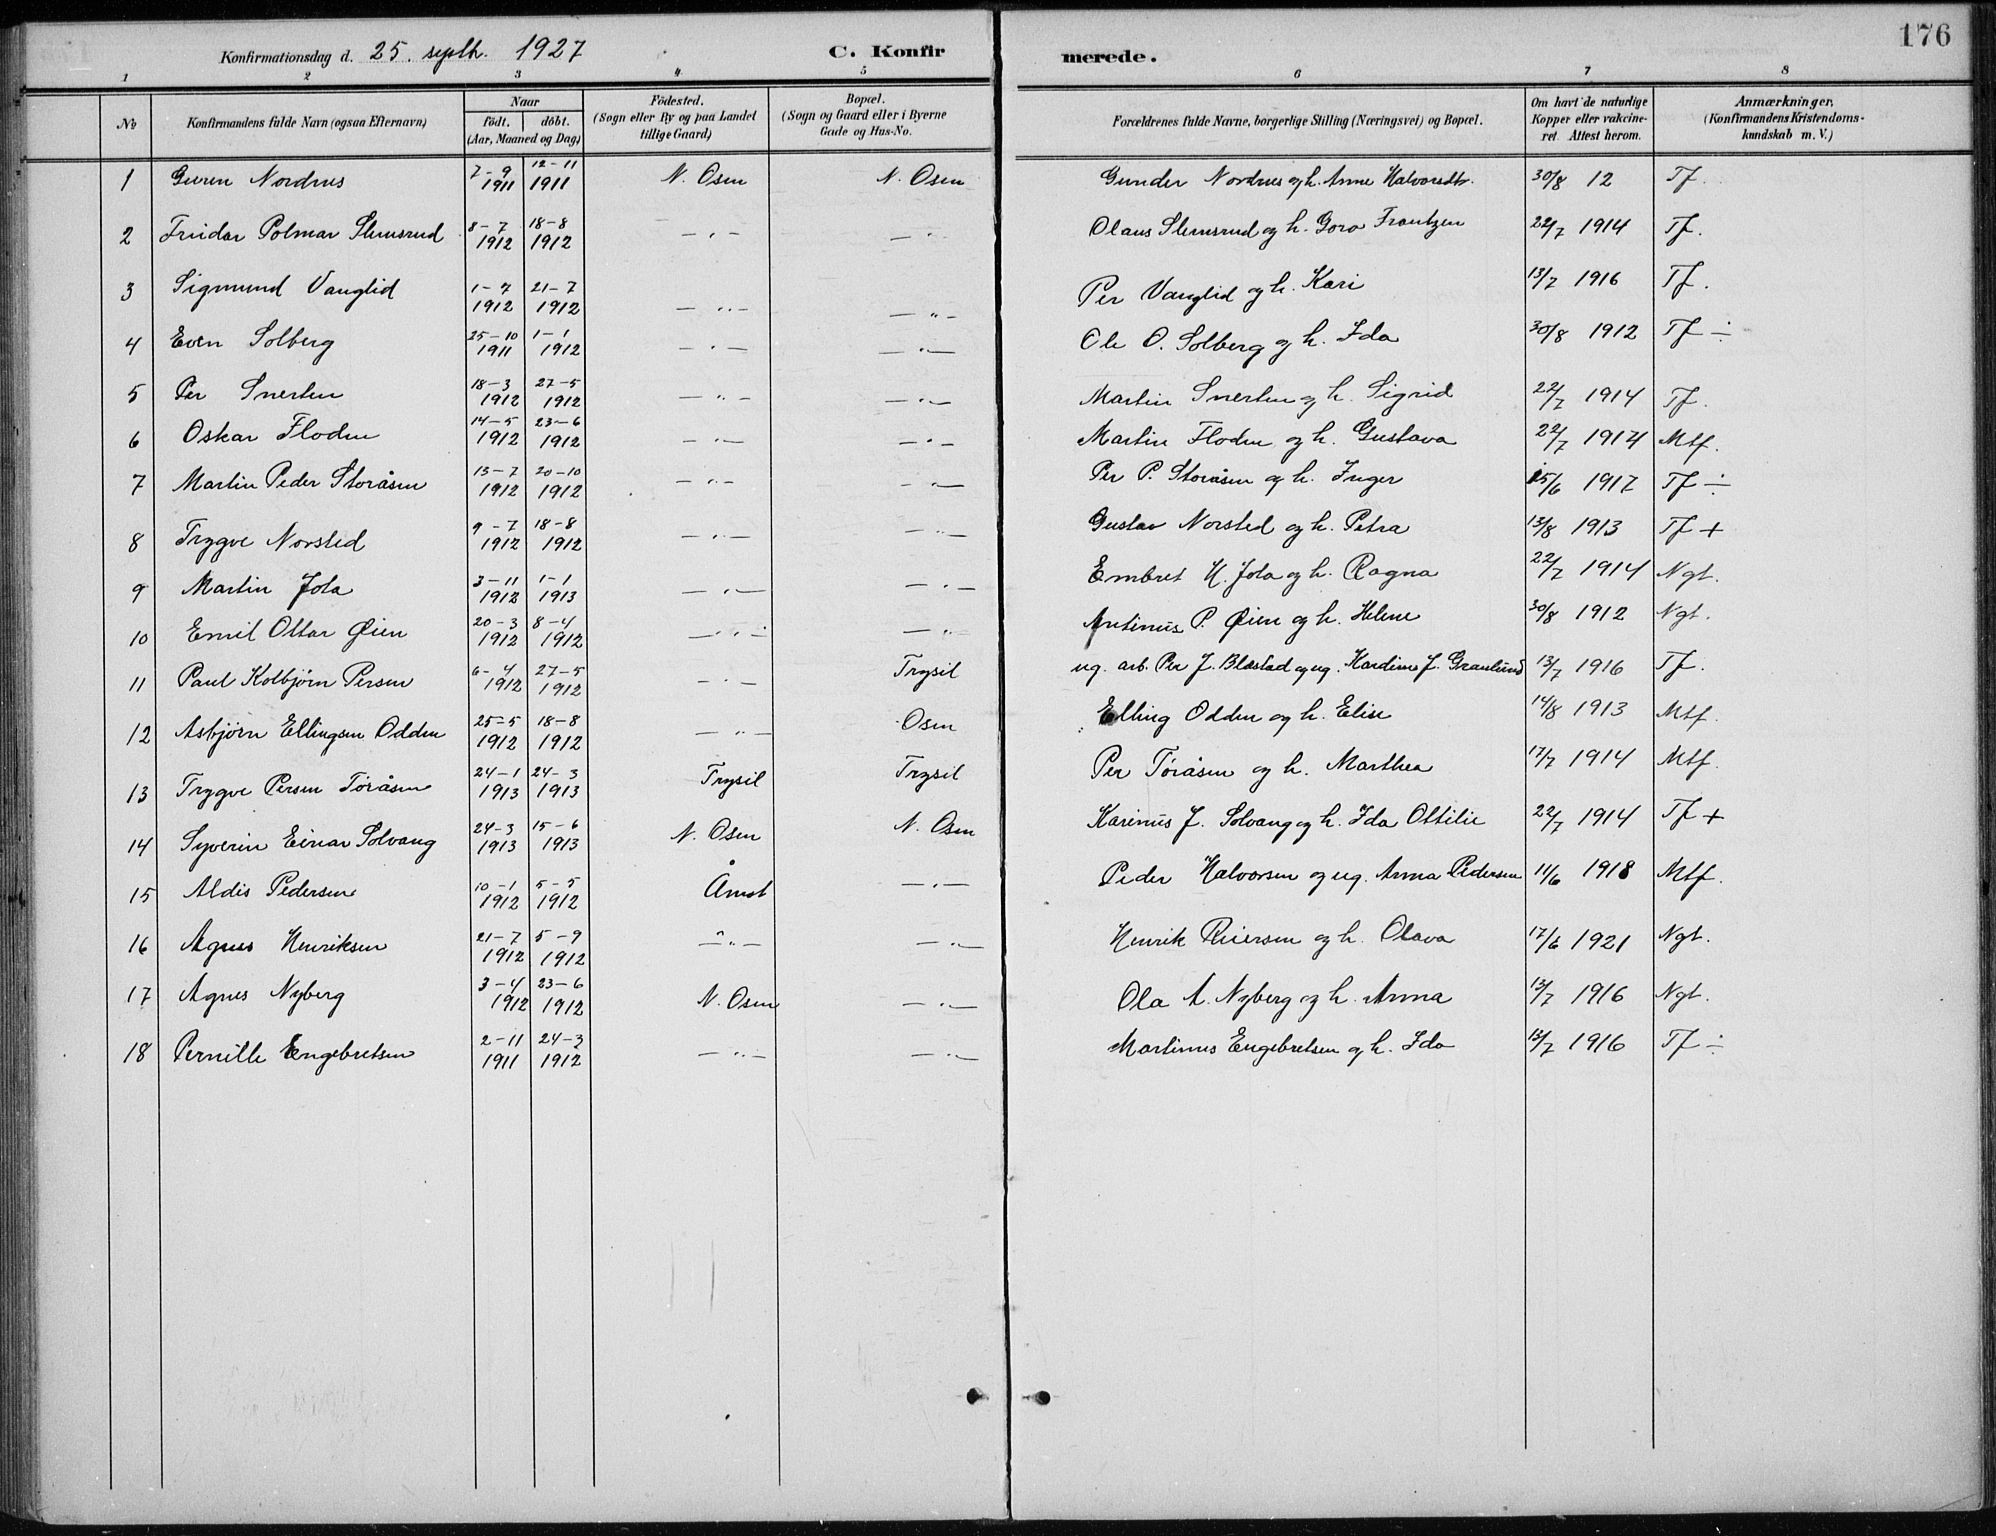 176
Konfirmationsdag d. 25. septb. 1927 C. Konfir merede.
1 2 3 4 5 6 7 8
No Konfirmandens fulde Navn (ogsaa Efternavn) Naar födt. döbt. (Aar, Maaned og Dag) Födested. (Sogn eller By og paa Landet tillige Gaard) Bopæl. (Sogn og Gaard eller i Byerne Gade og Hus-No. Forældrenes fulde Navne, borgerlige Stilling (Næringsvei) og Bopæl. Om havt de naturlige Kopper eller vakcineret. Attest herom. Anmærkninger. (Konfirmandens Kristendomskundskab m. V.)
1 Guren Nordnes 7-9 1911 12-11 1911 N. Osen N. Osen Gunder Nordnes og h. Anne Halvorsdtr. 30/8 12 Tf.
2 Fridar Polmar Slemsrud 8-7 1912 18-8 1912 -"- -"- Olaus Slemsrud og h. Goro Frantzen 22/7 1914 Tf.
3 Sigmund Vanglid 1-7 1912 21-7 1912 -"- -"- Per Vanglid og h. Kari 13/7 1916 Tf.
4 Even Solberg 25-10 1911 1-1 1912 -"- -"- Ole O. Solberg og h. Ida 30/8 1912 Tf ÷
5 Per Snerten 18-3 1912 27-5 1912 -"- -"- Martin Snerten og h. Sigrid 22/7 1914 Tf.
6 Oskar Floden 14-5 1912 23-6 1912 -"- -"- Martin Floden og h. Gustava 22/7 1914 Mtf.
7 Martin Peder Storåsen 13-7 1912 20-10 1912 -"- -"- Per P. Storåsen og h. Inger 15/6 1917 Tf ÷
8 Trygve Norsted 9-7 1912 18-8 1912 -"- -"- Gustav Norsted og h. Petra 13/8 1913 Tf +
9 Martin Jota 3-11 1912 1-1 1913 -"- -"- Embret H. Jota og h. Ragna 22/7 1914 Ngt.
10 Emil Ottar Øien 20-3 1912 8-4 1912 -"- -"- Antinus P. Øien og h. Helene 30/8 1912 Ngt.
11 Paul Kolbjørn Persen 6-4 1912 27-5 1912 -"- Trysil ug. arb. Per J. Blæstad og ug. Kardine J. Granlund 13/7 1916 Tf.
12 Asbjørn Ellingsen Odden 25-5 1912 18-8 1912 -"- Osen Elling Odden og h. Elise 14/8 1913 Mtf.
13 Trygve Persen Töråsen 24-1 1913 24-3 1913 Trysil Trysil Per Töråsen og h. Marthea 17/7 1914 Mtf.
14 Syverin Einar Solvang 24-3 1913 15-6 1913 N. Osen N. Osen Karenus J. Solvang og h. Ida Ottilie 22/7 1914 Tf +
15 Aldis Pedersen 10-1 1912 5-5 1912 Åmot -"- Peder Halvorsen og ug. Anna Pedersen 11/6 1918 Mtf.
16 Agnes Henriksen 21-7 1912 5-9 1912 -"- -"- Henrik Reiersen og h. Olava 17/6 1921 Ngt.
17 Agnes Nyberg 3-4 1912 23-6 1912 N. Osen -"- Ola A. Nyberg og h. Anna 13/7 1916 Ngt.
18 Pernille Engebretsen 2-11 1911 24-3 1912 -"- -"- Martinus Engebretsen og h. Ida 13/7 1916 Tf ÷